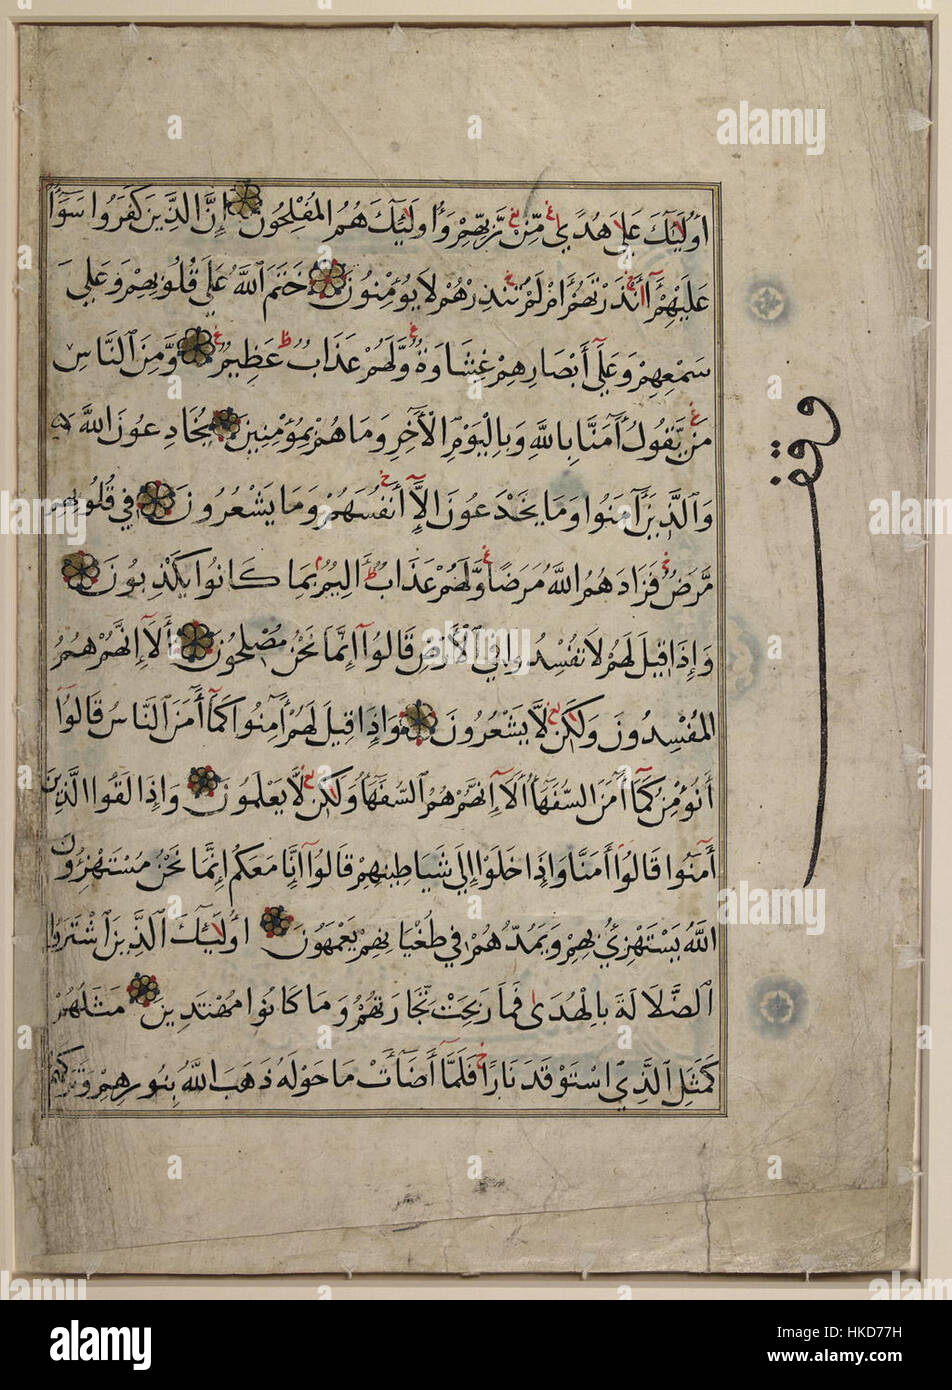 أُولَٰئِكَ عَلَىٰ هُدًى مِّن رَّبِّهِمْ وَأُولَٰئِكَ هُمُ الْمُفْلِحُونَ إِنَّ الَّذِينَ كَفَرُوا سَوَآءٌ
عَلَيْهِمْ أَأَنذَرْتَهُمْ أَمْ لَمْ تُنذِرْهُمْ لَا يُؤْمِنُونَ خَتَمَ اللَّهُ عَلَىٰ قُلُوبِهِمْ وَعَلَىٰ
سَمْعِهِمْ وَعَلَىٰ أَبْصَارِهِمْ غِشَاوَةٌ وَلَهُمْ عَذَابٌ عَظِيمٌ وَمِنَ النَّاسِ
مَن يَقُولُ آمَنَّا بِاللَّهِ وَبِالْيَوْمِ الْآخِرِ وَمَا هُم بِمُؤْمِنِينَ يُخَادِعُونَ اللَّهَ
وَالَّذِينَ آمَنُوا وَمَا يَخْدَعُونَ إِلَّا أَنفُسَهُمْ وَمَا يَشْعُرُونَ فِي قُلُوبِهِم
مَّرَضٌ فَزَادَهُمُ اللَّهُ مَرَضًا وَلَهُمْ عَذَابٌ أَلِيمٌ بِمَا كَانُوا يَكْذِبُونَ
وَإِذَا قِيلَ لَهُمْ لَا تُفْسِدُوا فِي الْأَرْضِ قَالُوا إِنَّمَا نَحْنُ مُصْلِحُونَ أَلَا إِنَّهُمْ هُمُ
الْمُفْسِدُونَ وَلَٰكِن لَّا يَشْعُرُونَ وَإِذَا قِيلَ لَهُمْ آمِنُوا كَمَا آمَنَ النَّاسُ قَالُوا
أَنُؤْمِنُ كَمَا آمَنَ السُّفَهَاءُ أَلَا إِنَّهُمْ هُمُ السُّفَهَاءُ وَلَٰكِن لَّا يَعْلَمُونَ وَإِذَا لَقُوا الَّذِينَ
آمَنُوا قَالُوا آمَنَّا وَإِذَا خَلَوْا إِلَىٰ شَيَاطِينِهِمْ قَالُوا إِنَّا مَعَكُمْ إِنَّمَا نَحْنُ مُسْتَهْزِئُونَ
اللَّهُ يَسْتَهْزِئُ بِهِمْ وَيَمُدُّهُمْ فِي طُغْيَانِهِمْ يَعْمَهُونَ أُولَٰئِكَ الَّذِينَ اشْتَرَوُا
الضَّلَالَةَ بِالْهُدَىٰ فَمَا رَبِحَتْ تِجَارَتُهُمْ وَمَا كَانُوا مُهْتَدِينَ مَثَلُهُمْ
كَمَثَلِ الَّذِي اسْتَوْقَدَ نَارًا فَلَمَّا أَضَاءَتْ مَا حَوْلَهُ ذَهَبَ اللَّهُ بِنُورِهِمْ وَتَرَكَهُمْ
وقف
alamy
Image ID: HKD77H
www.alamy.com